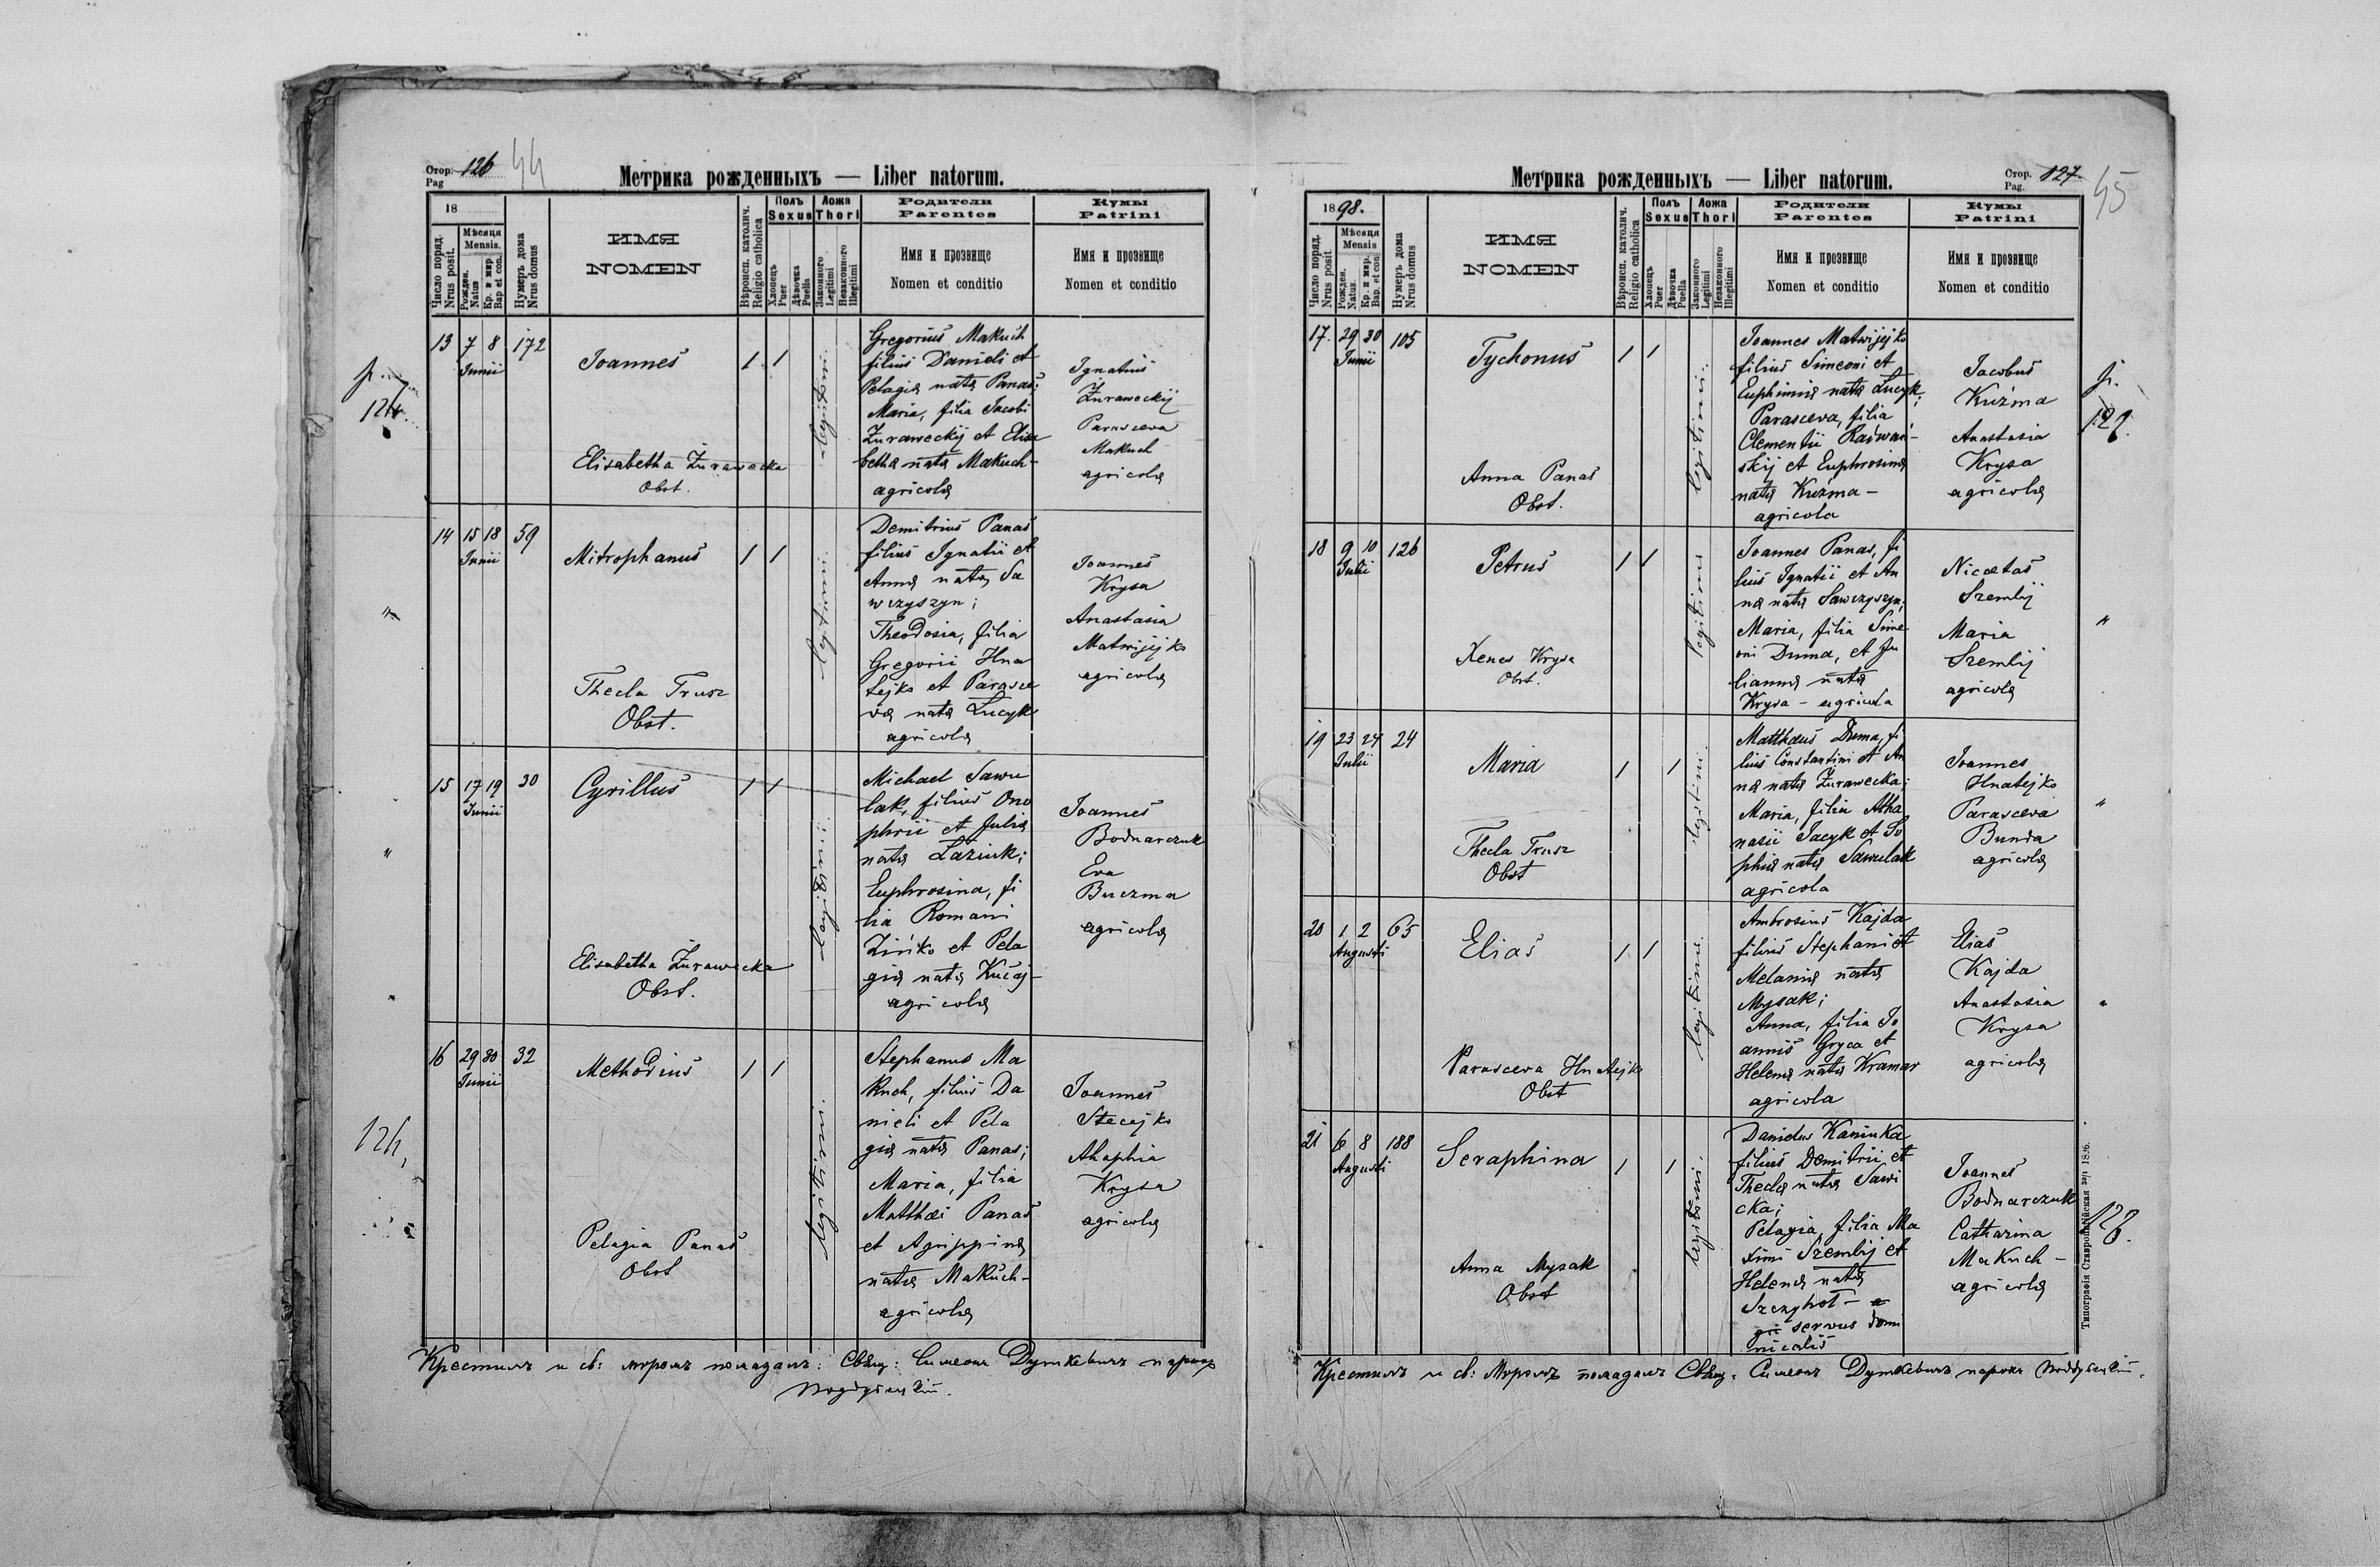 Стор. Pag 126 44
Метрика рожденныхъ — Liber natorum.
18
Число поряд. Nrus posit.
Мѣсяця Mensis.
Рожден. Natus
Кр. и мѵр. Bap et con.
Нумеръ дома Nrus domus
ИМЯ
NOMEN
Вѣроисп. католич. Religio catholica
Полъ Sexus
Хлопецъ Puer
Дѣвочка Puella
Ложа Thori
Законного Legitimi
Незаконного Illegitimi
Родители
Parentes
Имя и прозвище
Nomen et conditio
Кумы
Patrini
Имя и прозвище
Nomen et conditio
13 7 8 172
Junii
Joannes
1 1
legitimi
Gregorius Makuch
filius Danieli et
Pelagia nata Panas;
Maria, filia Jacobi
Żuraweckij et Elisa
betha nata Makuch-
agricola
Ignatius
Żuraweckij
Parasceva
Makuch
agricola
Elisabetha Żurawecka
Obst.
14 15 18 59
Junii
Mitrophanus
1 1
legitimi
Demitrius Panas
filius Ignatii et
Anna nata Sa
wczyszyn;
Theodosia, filia
Gregorii Hna
tejko et Parasce
va nata Łucyk
agricola
Joannes
Krysa
Anastasia
Matwijejko
agricola
Thecla Trusz
Obst.
15 17 19 30
Junii
Cyrillus
1 1
legitimi
Michael Sawu
lak, filius Ono
phrii et Julia
nata Łaziuk;
Euphrosina, fi
lia Romani
Zińko et Pela
gia nata Kučaj-
agricola
Joannes
Bodnarczuk
Eva
Buczma
agricola
Elisabetha Żurawecka
Obst.
16 29 30 32
Junii
Methodius
1 1
legitimi
Stephanus Ma
kuch, filius Da
nieli et Pela
gia nata Panas;
Maria, filia
Matthæi Panas
et Agrippina
nata Makuch-
agricola
Joannes
Stecejko
Ahaphia
Krysa
agricola
Pelagia Panas
Obst
Крестилъ и св: мѵромъ помазалъ: Свящ: Симеонъ Дуткевичъ парохъ
Поддубецкій.
Стор. Pag. 127. 45
Метрика рожденныхъ — Liber natorum.
1898.
Число поряд. Nrus posit
Мѣсяця Mensis
Рожден. Natus.
Кр. и мѵр. Bap. et con
Нумеръ дома Nrus domus
ИМЯ
NOMEN
Вѣроисп. католич. Religio catholica
Полъ Sexus
Хлопецъ Puer
Дѣвочка Puella
Ложа Thori
Законного Legitimi
Незаконного Illegitimi
Родители
Parentes
Имя и прозвище
Nomen et conditio
Кумы
Patrini
Имя и прозвище
Nomen et conditio
17. 29 30 105
Junii
Tychonus
1 1
legitimi.
Joannes Matwijejko
filius Simeoni et
Euphimia nata Łucyk;
Parasceva, filia
Clementii Raówań-
skij et Euphrosina
nata Kuźma -
agricola
Jacobus
Kuźma
Anastasia
Krysa
agricola
Anna Panas
Obst.
18 9 10 126
Julii
Petrus
1 1
legitimi
Joannes Panas, fi
lius Ignatii et An
na nata Sawczyszyn;
Maria, filia Sime
oni Duma, et Ju
lianna nata
Krysa - agricola
Nicetas
Szemlij
Maria
Szemlij
agricola
Xenea Krysa
Obst.
19 23 24 24
Julii
Maria
1 1
legitimi.
Matthæus Duma, fi
lius Constantini et An
na nata Żurawecka;
Maria, filia Atha
nasii Jacyk et So
phia nata Sawulak
agricola
Joannes
Hnatejko
Parasceva
Bunda
agricola
Thecla Trusz
Obst
20 1 2 65
Augusti
Elias
1 1
legitimi.
Ambrosius Kajda
filius Stephani et
Melania nata
Mysak;
Anna, filia Jo
annis Gryca et
Helena nata Kramar
agricola
Elias
Kajda
Anastasia
Krysa
agricola
Parasceva Hnatejko
Obst
21 6 8 188
Augusti
Seraphina
1 1
legitimi.
Danielus Kaniuka
filius Demitrii et
Thecla nata Sawi
cka;
Pelagia, filia Ma
ximi Szemlij et
Helena nata
Szczyhot - a
gri servus domi
nicalis
Joannes
Bodnarczuk
Catharina
Makuch -
agricola
Anna Mysak
Obst
Крестилъ и св: Мѵромъ помазалъ Свящ. Симеонъ Дуткевичъ парохъ Поддубецкій.